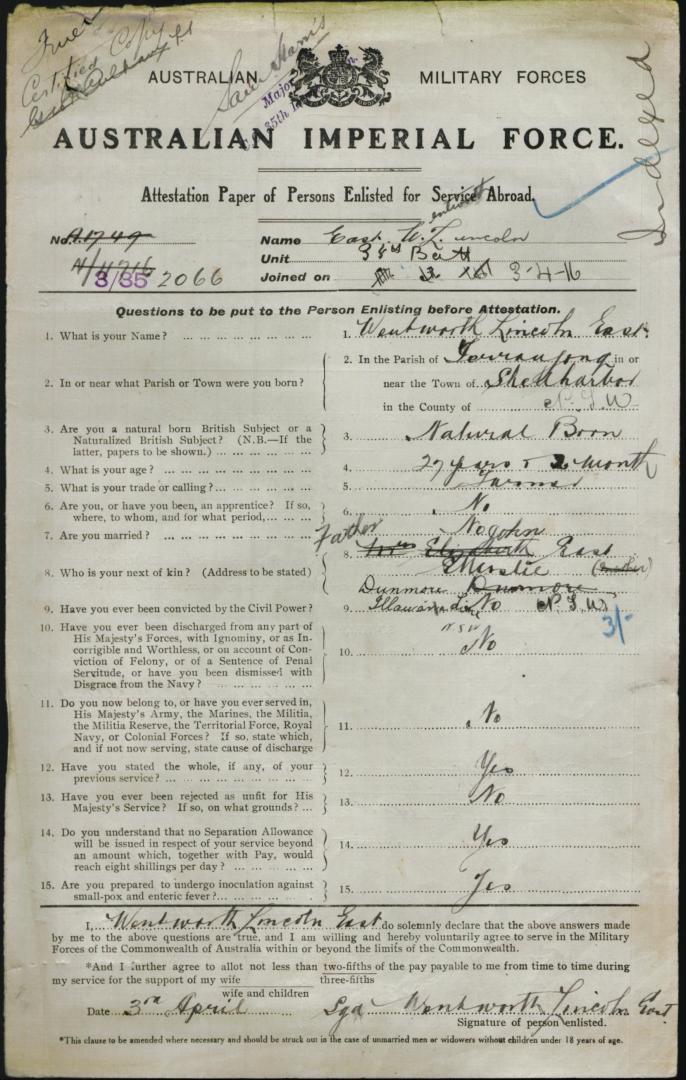 True
Certified Copy
Indexed
AUSTRALIAN MILITARY FORCES
Major
35th
AUSTRALIAN IMPERIAL FORCE.
Attestation Paper of Persons Enlisted for Service Abroad.
No. A1749
3/35 2066
Name East W. Lincoln
Wentworth
Unit 35th Batt
Joined on 3-4-16
Questions to be put to the Person Enlisting before Attestation.
1. What is your Name? ... 1. Wentworth Lincoln East.
2. In or near what Parish or Town were you born? 2. In the Parish of in or
near the Town of Shellharbor
in the County of N.S.W
3. Are you a natural born British Subject or a
Naturalized British Subject? (N.B.—If the
latter, papers to be shown.) ... 3. Natural Born
4. What is your age? ... 4. 27 years & 2 month
5. What is your trade or calling? ... 5. Farmer
6. Are you, or have you been, an apprentice? If so,
where, to whom, and for what period, ... 6. No
7. Are you married? ... 7. No
Father John
8. Who is your next of kin? (Address to be stated) 8. Mrs Elizabeth East
(Mother)
Dunmore Dunmore
Illawarra Line N.S.W.
N.S.W.
3/-
9. Have you ever been convicted by the Civil Power? 9. No
10. Have you ever been discharged from any part of
His Majesty's Forces, with Ignominy, or as In-
corrigible and Worthless, or on account of Con-
viction of Felony, or of a Sentence of Penal
Servitude, or have you been dismissed with
Disgrace from the Navy? ... 10. No
11. Do you now belong to, or have you ever served in,
His Majesty's Army, the Marines, the Militia,
the Militia Reserve, the Territorial Force, Royal
Navy, or Colonial Forces? If so, state which,
and if not now serving, state cause of discharge 11. No
12. Have you stated the whole, if any, of your
previous service? ... 12. Yes
13. Have you ever been rejected as unfit for His
Majesty's Service? If so, on what grounds? ... 13. No
14. Do you understand that no Separation Allowance
will be issued in respect of your service beyond
an amount which, together with Pay, would
reach eight shillings per day? ... 14. Yes
15. Are you prepared to undergo inoculation against
small-pox and enteric fever? ... 15. Yes
I, Wentworth Lincoln East do solemnly declare that the above answers made
by me to the above questions are true, and I am willing and hereby voluntarily agree to serve in the Military
Forces of the Commonwealth of Australia within or beyond the limits of the Commonwealth.
*And I further agree to allot not less than two-fifths of the pay payable to me from time to time during
my service for the support of my wife three-fifths
wife and children
Date 3rd April Sgd Wentworth Lincoln East
Signature of person enlisted.
*This clause to be amended where necessary and should be struck out in the case of unmarried men or widowers without children under 18 years of age.